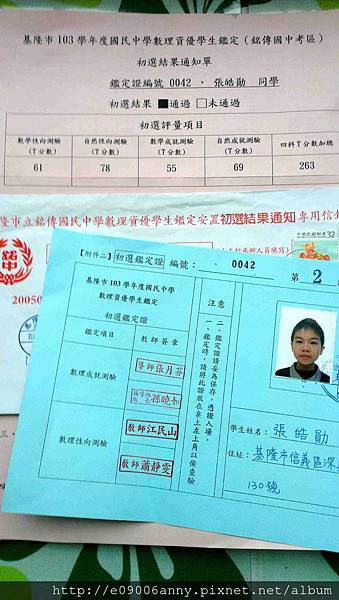 基隆市 103 學年度國民中學數理資優學生鑑定(銘傳國中考區)
初選結果通知單
鑑定證編號 0042 , 張皓勛 同學
初選結果 ■通過 □未通過
初選評量項目
數學性向測驗 (T分數) 自然性向測驗 (T分數) 數學成就測驗 (T分數) 自然成就測驗 (T分數) 四科T分數加總
61 78 55 69 263
基隆市立銘傳國民中學數理資優學生鑑定安置初選結果通知專用信封
32
銘中
20050
【附件二】初選鑑定證 編號: 0042
第 2
基隆市 103 學年度國民中學
數理資優學生鑑定
初選鑑定證
鑑定項目 教師簽章
數理成就測驗
導師張月芬
孫曉如
數理性向測驗
教師江民山
教師蕭靜雯
注意
一、鑑定時,請將此證放在桌上左上角以備查驗
二、鑑定證請妥為保存,憑證入場。
學生姓名: 張皓勛
住址: 基隆市信義區深
130號
http://e09006anny.pixnet.net/album